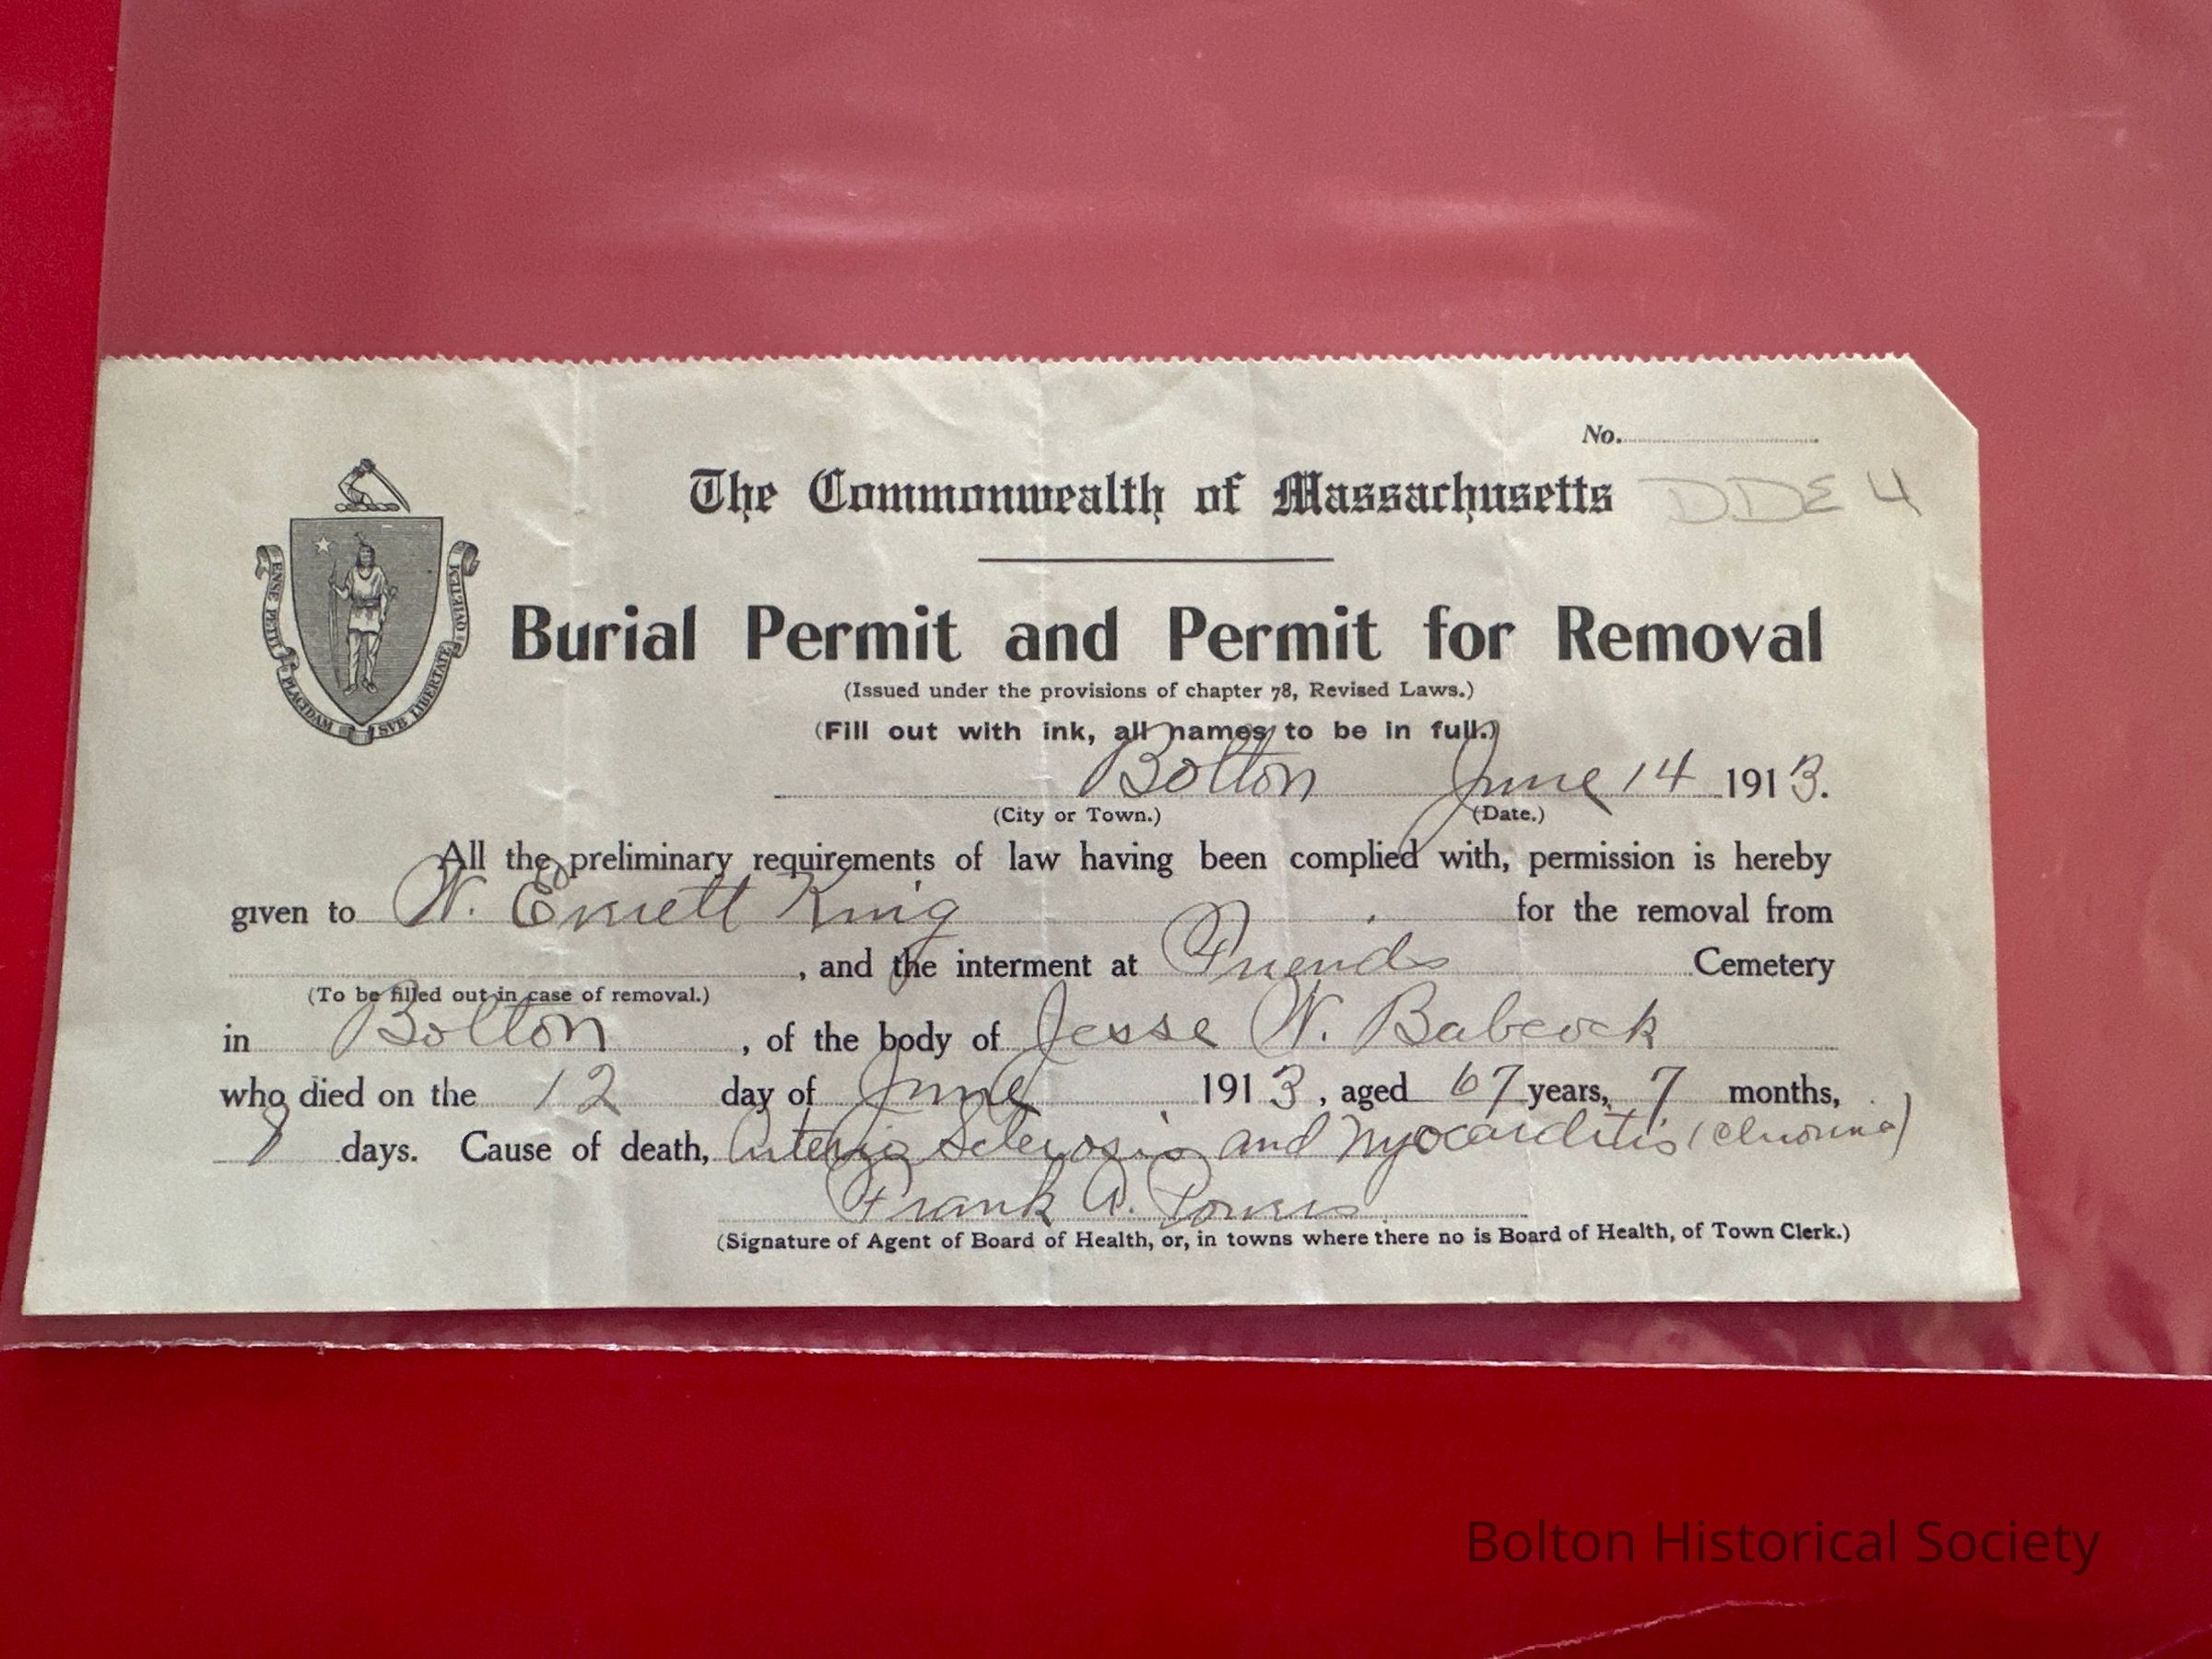 No.
The Commonwealth of Massachusetts DDE 4
ENSE PETIT PLACIDAM SVB LIBERTATE QVIETEM
Burial Permit and Permit for Removal
(Issued under the provisions of chapter 78, Revised Laws.)
(Fill out with ink, all names to be in full.)
Bolton June 14 1913.
(City or Town.) (Date.)
All the preliminary requirements of law having been complied with, permission is hereby
given to W. Everett King for the removal from
, and the interment at Friends Cemetery
(To be filled out in case of removal.)
in Bolton, of the body of Jesse W. Babcock
who died on the 12 day of June 1913, aged 67 years, 7 months,
days. Cause of death, Arterio Sclerosis and Myocarditis
Frank A. Powers
(Signature of Agent of Board of Health, or, in towns where there no is Board of Health, of Town Clerk.)
Bolton Historical Society